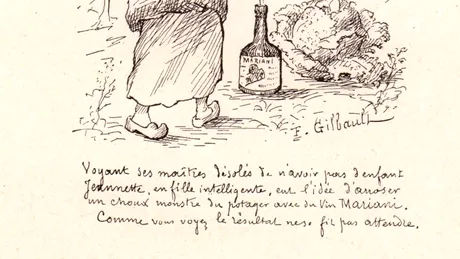 MARIANI
E. Gilbault
Voyant ses maîtres désolés de n'avoir pas d'enfant
Jeannette, en fille intelligente, eut l'idée d'arroser
un choux monstre du potager avec du Vin Mariani.
Comme vous voyez le résultat ne se fit pas attendre.